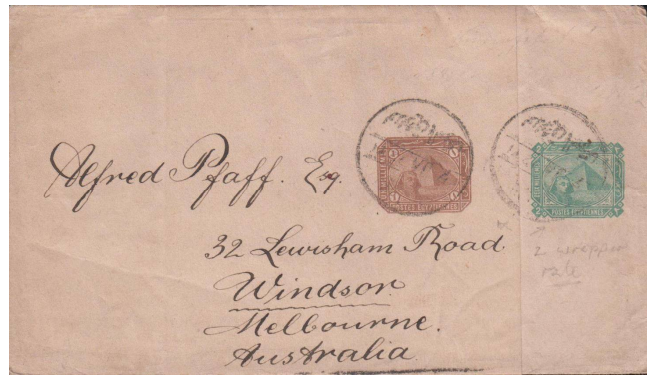 Alfred Pfaff. Esq.
32 Lewisham Road
Windsor
Melbourne.
Australia
POSTES EGYPTIENNES
POSTES EGYPTIENNES
2 wrapper
rate